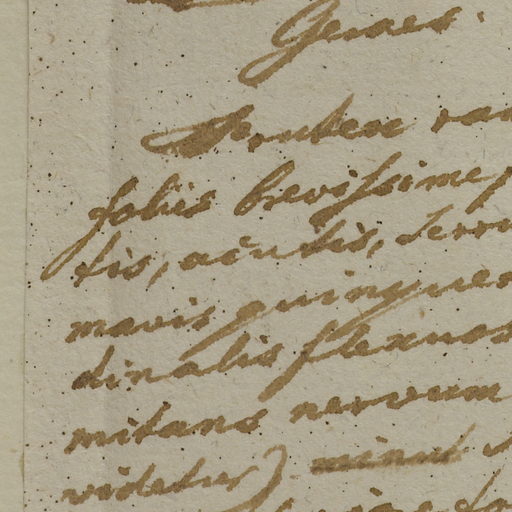 foliis brevissime
tis, acutis, serr
mavis quinquen
dinalis flexuos
mitans nervum
videtur) minut